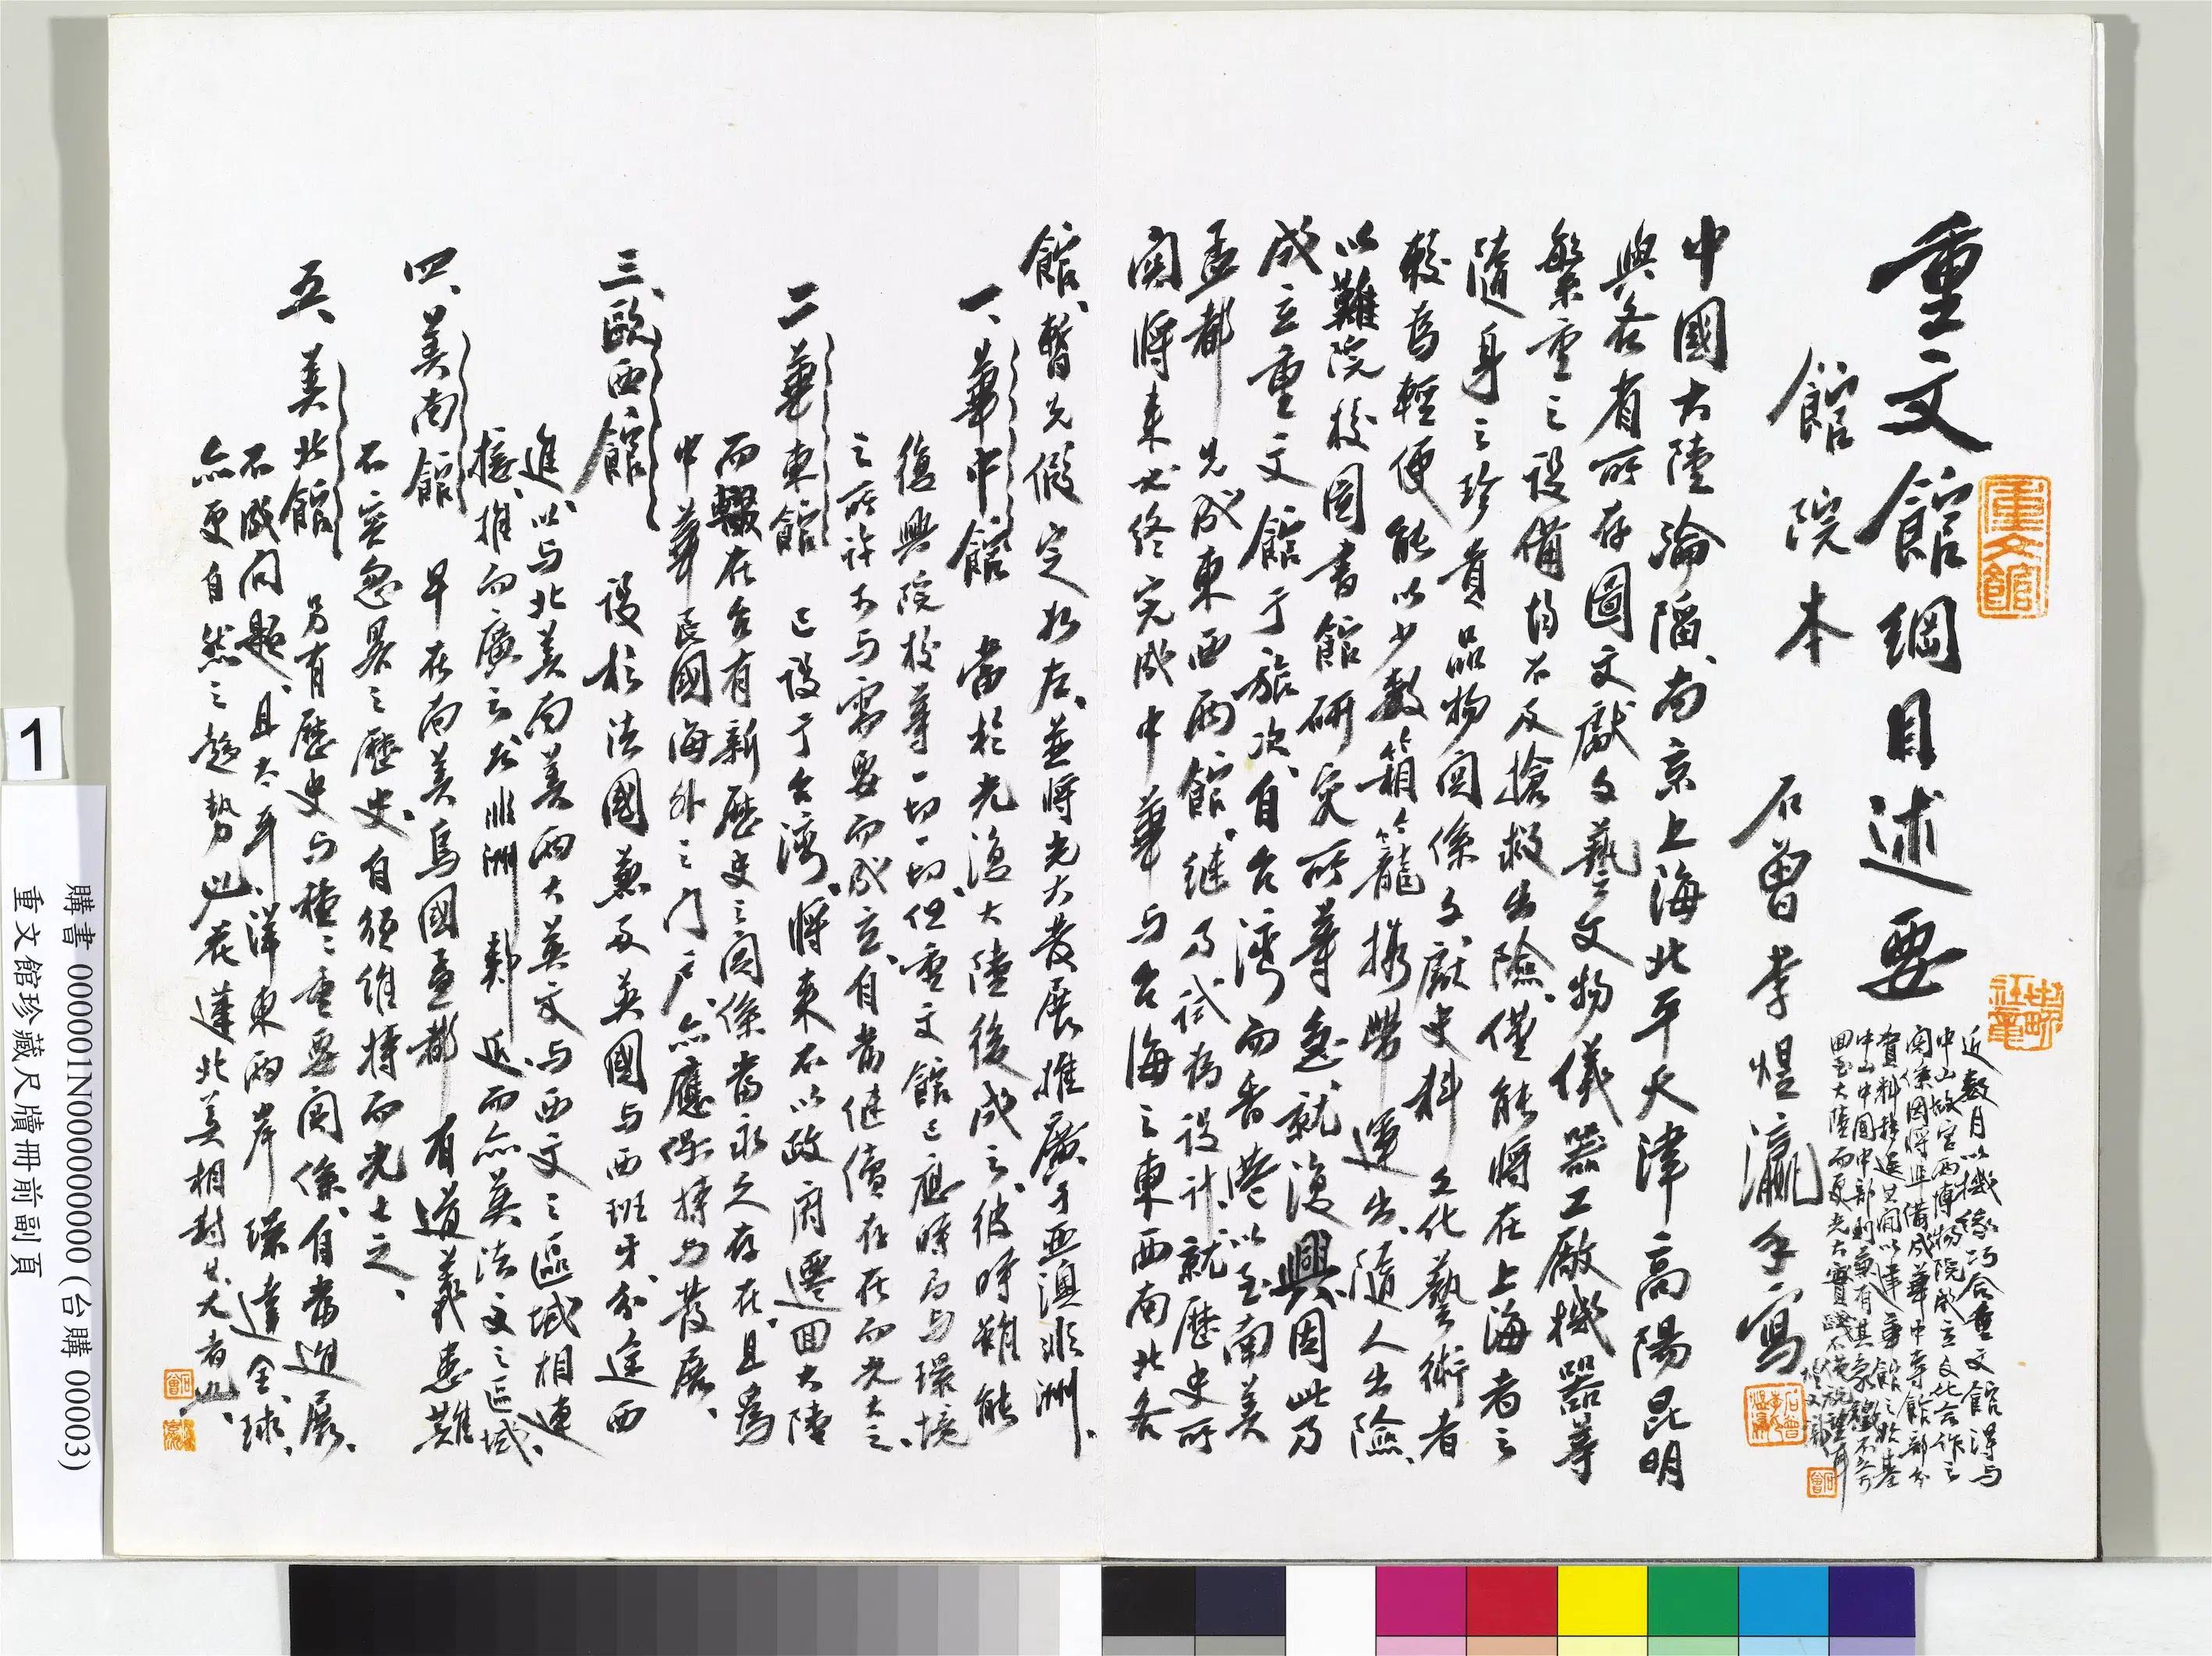 重文館綱目述要
館院本
石曾李煜瀛手寫
近數月以機緣巧合重文館得與
中山故宮兩博物院成立文化合作之
關係因將準備成華中等館部分
資料移送其間以建章館之於基
中山中國中部利京有其象徵不啻
回至大陸而更光大實
中國大陸淪陷、南京上海北平天津高陽昆明
與各省所存圖文獻文藝文物儀器工廠機器等
繁重之設備均不及搶救出險、僅能將在上海者之
隨身之珍貴品物関係文獻史料文化藝術者
較為輕便能以少數箱籠攜帶運出、隨人出險、
以難院校圖書館研究所等急就復興因此乃
成立重文館于旅次、自台灣而香港以至南美
孟都先成東西兩館、繼乃試為設計、就歷史所
関將來必終完成中華与台海之東西南北各
館、暫先假定如左、並將光大發展推廣于亞澳非洲、
一、華中館 當於光復大陸後成之、彼時雖能
復興院校等一切一切、但重文館已應時局与環境
之所許求与需要而成立、自當繼續存在而光大之、
二、華東館 已設于台灣、將來不以政府遷回大陸
而輟在台有新歷史之関係當永久存在、且為
中華民國海外之门戶、亦應保持与發展、
三、歐西館 設於法國兼及英國与西班牙、亦途西
進、以与北美南美兩大英文与西文之區域相連
接、推而廣之於非洲鄰近而亦英法文之區域、
四、美南館 早在南美烏國孟都有道義患難
不容忽畧之歷史、自須維持而光大之、
五、美北館 另有歷史与種〻重要関係、自當進展、
不成问題、且太平洋東西兩岸環達全球、
亦更自然之趨勢、以在蓮北美相對其尤者也、
重文館
石曾
石曾
1
購書 0000001N000000000 (台購 00003)
重文館珍藏尺牘冊前副頁